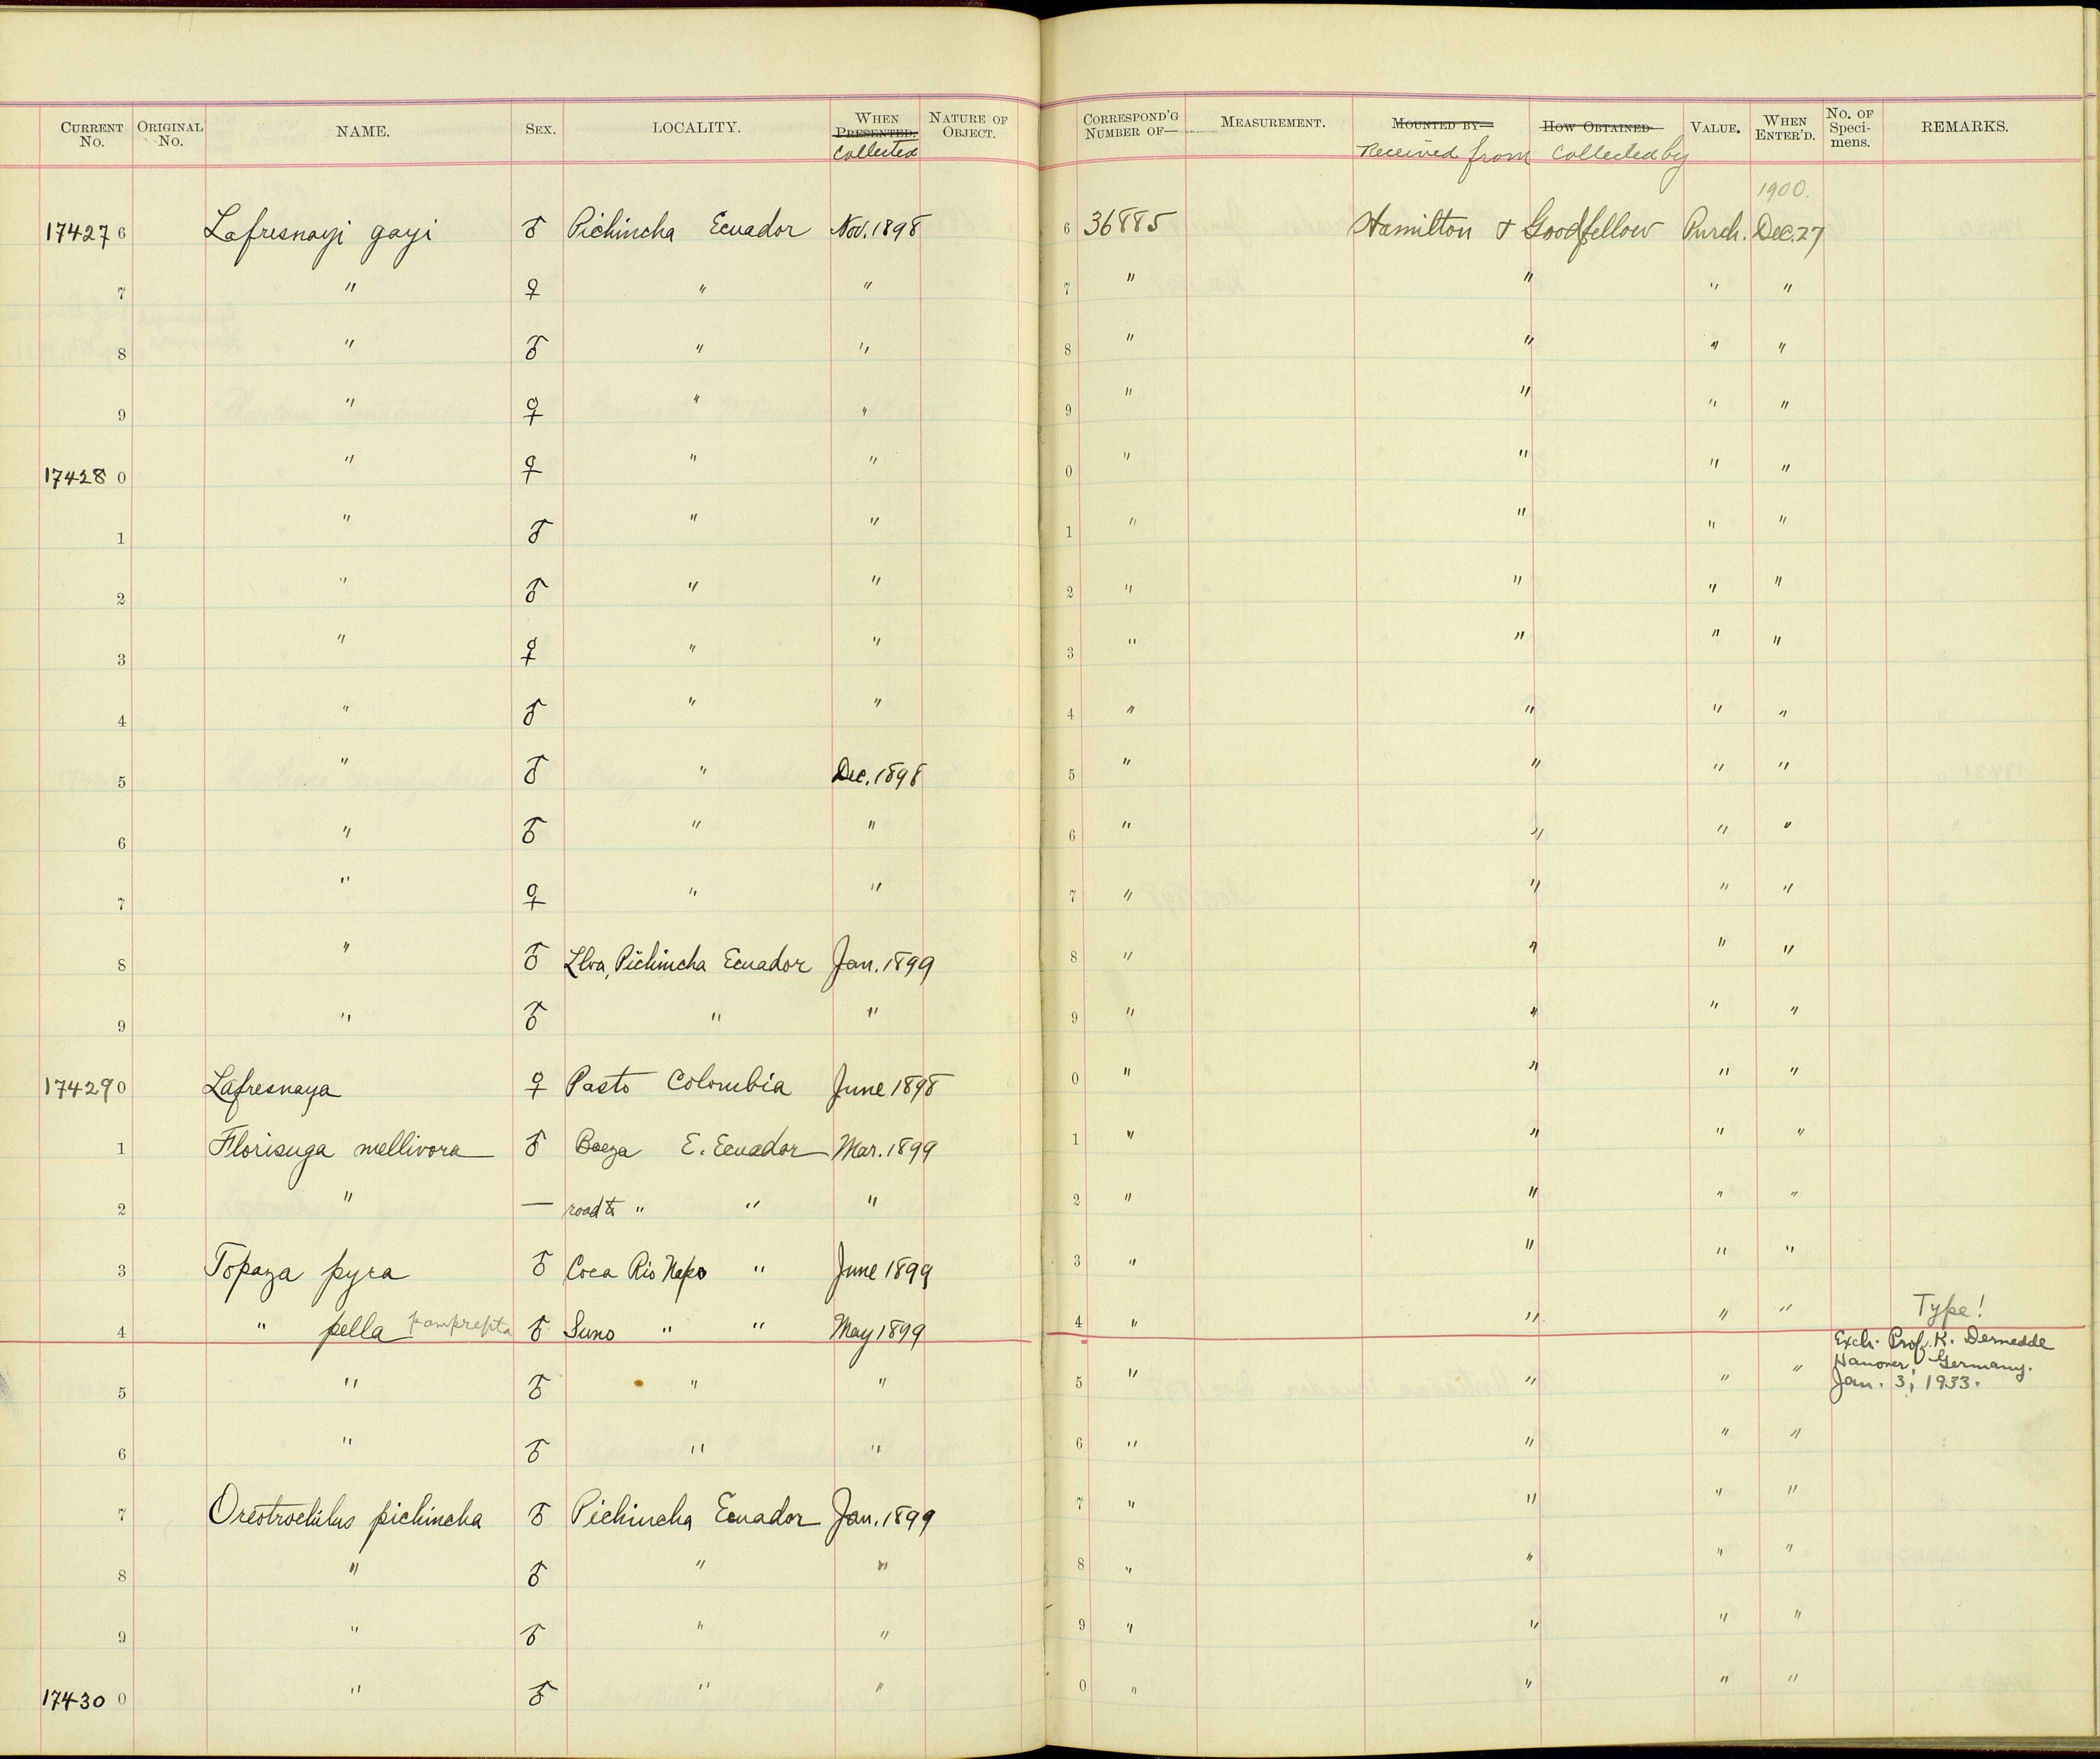 CURRENT No. ORIGINAL No. NAME. SEX. LOCALITY. WHEN PRESENTED. Collected NATURE OF OBJECT. CORRESPOND'G NUMBER OF— MEASUREMENT. MOUNTED BY— Received from HOW OBTAINED Collected by VALUE. WHEN ENTER'D. No. OF Speci-mens. REMARKS.
1900.
174276 Lafresnayi gayi ♂ Pichincha Ecuador Nov. 1898 6 36885 Hamilton & Goodfellow Purch. Dec. 27
7 " ♀ " " 7 " " " "
8 " ♂ " " 8 " " " "
9 " ♀ " " 9 " " " "
174280 " ♀ " " 0 " " " "
1 " ♂ " " 1 " " " "
2 " ♂ " " 2 " " " "
3 " ♀ " " 3 " " " "
4 " ♂ " " 4 " " " "
5 " ♂ " Dec. 1898 5 " " " "
6 " ♂ " " 6 " " " "
7 " ♀ " " 7 " " " "
8 " ♂ Lloa, Pichincha Ecuador Jan. 1899 8 " " " "
9 " ♂ " " 9 " " " "
174290 Lafresnaya ♀ Pasto Colombia June 1898 0 " " " "
1 Florisuga mellivora ♂ Baeza E. Ecuador Mar. 1899 1 " " " "
2 " — road to " " " 2 " " " "
3 Topaza pyra ♂ Coca Rio Napo " June 1899 3 " " " "
4 " pella pamprepta ♂ Suno " " May 1899 4 " " " " Type!
5 " ♂ " " 5 " " " " Exch. Prof. K. Dernedde
Hanover, Germany.
Jan. 3, 1933.
6 " ♂ " " 6 " " " "
7 Oreotrochilus pichincha ♂ Pichincha Ecuador Jan. 1899 7 " " " "
8 " ♂ " " 8 " " " "
9 " ♂ " " 9 " " " "
174300 " ♂ " " 0 " " " "